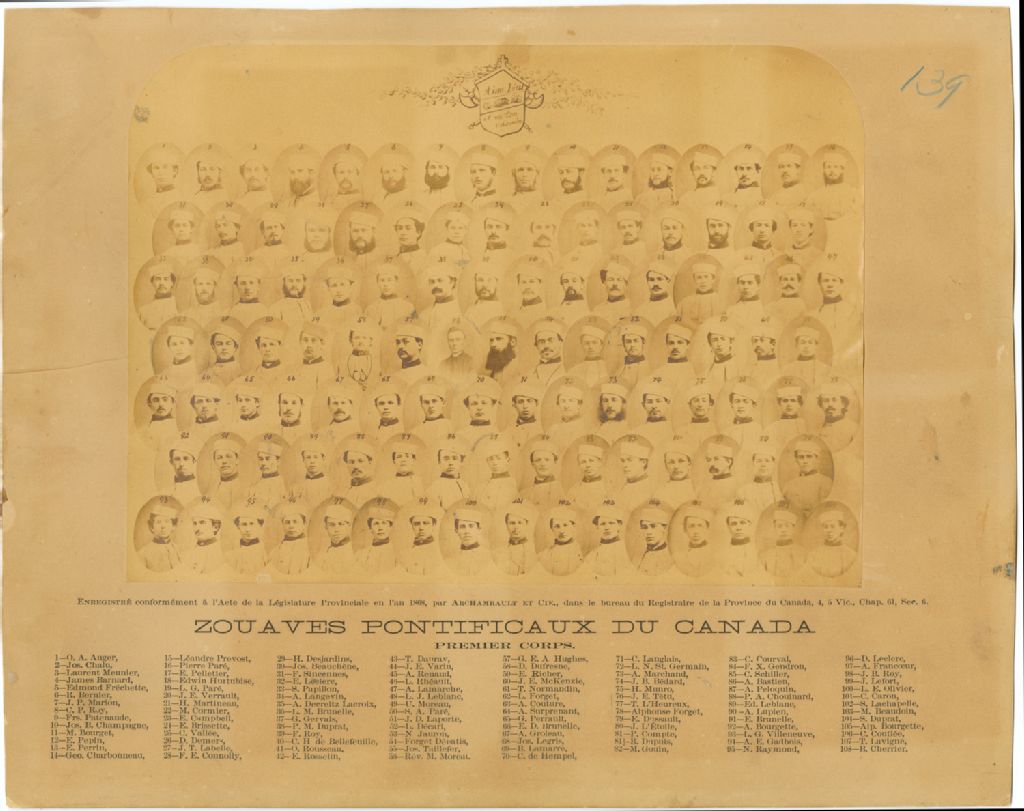 139
Aime Dieu
ENREGISTRÉ conformément à l'Acte de la Législature Provinciale en l'an 1868, par ARCHAMBAULT ET CIE., dans le bureau du Registraire de la Province du Canada, 4, 5 Vic., Chap. 61, Sec. 6.
ZOUAVES PONTIFICAUX DU CANADA
PREMIER CORPS.
1—O. A. Auger,
2—Jos. Chalu,
3—Laurent Meunier,
4—James Barnard,
5—Edmond Fréchette,
6—R. Bernier,
7—J. P. Marion,
8—C. P. Roy,
9—Frs. Patenaude,
10—Jos. B. Champagne,
11—M. Bourget,
12—E. Pepin,
13—E. Perrin,
14—Geo. Charbonneau,
15—Léandre Prevost,
16—Pierre Paré,
17—E. Pelletier,
18—Edwin Hurtubise,
19—L. G. Paré,
20—J. E. Verrault,
21—H. Martineau,
22—M. Cormier,
23—E. Campbell,
24—E. Brissette,
25—C. Vallée,
26—D. Demers,
27—J. T. Labelle,
28—F. E. Connolly,
29—H. Desjardins,
30—Jos. Beauchêne,
31—F. Sincennes,
32—E. Leclerc,
33—S. Papillon,
34—A. Langevin,
35—A. Decreltz Lacroix,
36—L. M. Brunelle,
37—G. Gervais,
38—P. M. Duprat,
39—F. Roy,
40—C. H. de Bellefeuille,
41—O. Rousseau,
42—E. Rossetin,
43—T. Dauray,
44—J. E. Varin,
45—A. Renaud,
46—L. Rhéault,
47—A. Lamarche,
48—L. J. Leblanc,
49—U. Moreau,
50—S. A. Paré,
51—J. D. Laporte,
52—L. Hécart,
53—N. Jauron,
54—Forget Dépatis,
55—Jos. Taillefer,
56—Rév. M. Moreau.
57—G. E. A. Hughes,
58—D. Dufresne,
59—E. Richer,
60—J. E. McKenzie,
61—T. Normandin,
62—L. Forget,
63—A. Couture,
64—A. Surprenant,
65—G. Perrault,
66—E. D. Brunelle,
67—A. Groleau,
68—Jos. Legris,
69—B. Lamarre,
70—C. de Hempel,
71—C. Langlais,
72—L. N. St. Germain,
73—A. Marchand,
74—J. R. Bédard,
75—H. Munro,
76—J. E. Têtu,
77—T. L'Heureux,
78—Alphonse Forget,
79—E. Dussault,
80—J. L'Étoile,
81—P. Compte,
81½—B. Dupuis,
82—M. Genin,
83—C. Courval,
84—F. X. Gendron,
85—C. Schiller,
86—A. Bastien,
87—A. Peloquin,
88—P. A. Chouinard,
89—Ed. Leblanc,
90—A. Lupien,
91—E. Brunelle,
92—A. Bourgette,
93—L. G. Villeneuve,
94—A. E. Gadbois,
95—N. Raymond,
96—D. Leclère,
97—A. Francoeur,
98—J. B. Roy,
99—J. Lefort,
100—L. E. Olivier,
101—C. Caron,
102—S. Lachapelle,
103—M. Beaudoin,
104—S. Duprat,
105—Alp. Bourgette,
106—C. Coutlée,
107—T. Lavigne,
108—B. Cherrier.